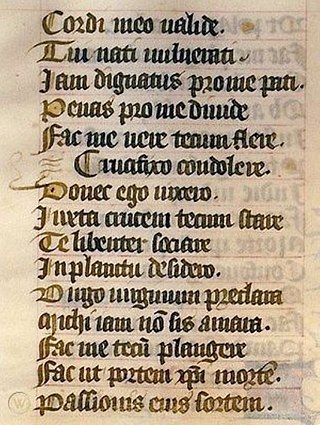 Cordi meo ualide.
Tui nati uulnerati.
Iam dignatus pro me pati.
Penas pro me diuide
Fac me uere tecum flere.
Crucifixo condolere.
Donec ego uixero.
Iuxta crucem tecum stare
Te libenter sociare
In planctu desidero.
Uirgo uirginum preclara
Michi iam nō sis amara.
Fac me tecū plangere
Fac ut portem xp̄i mortē.
Passionis eius sortem.